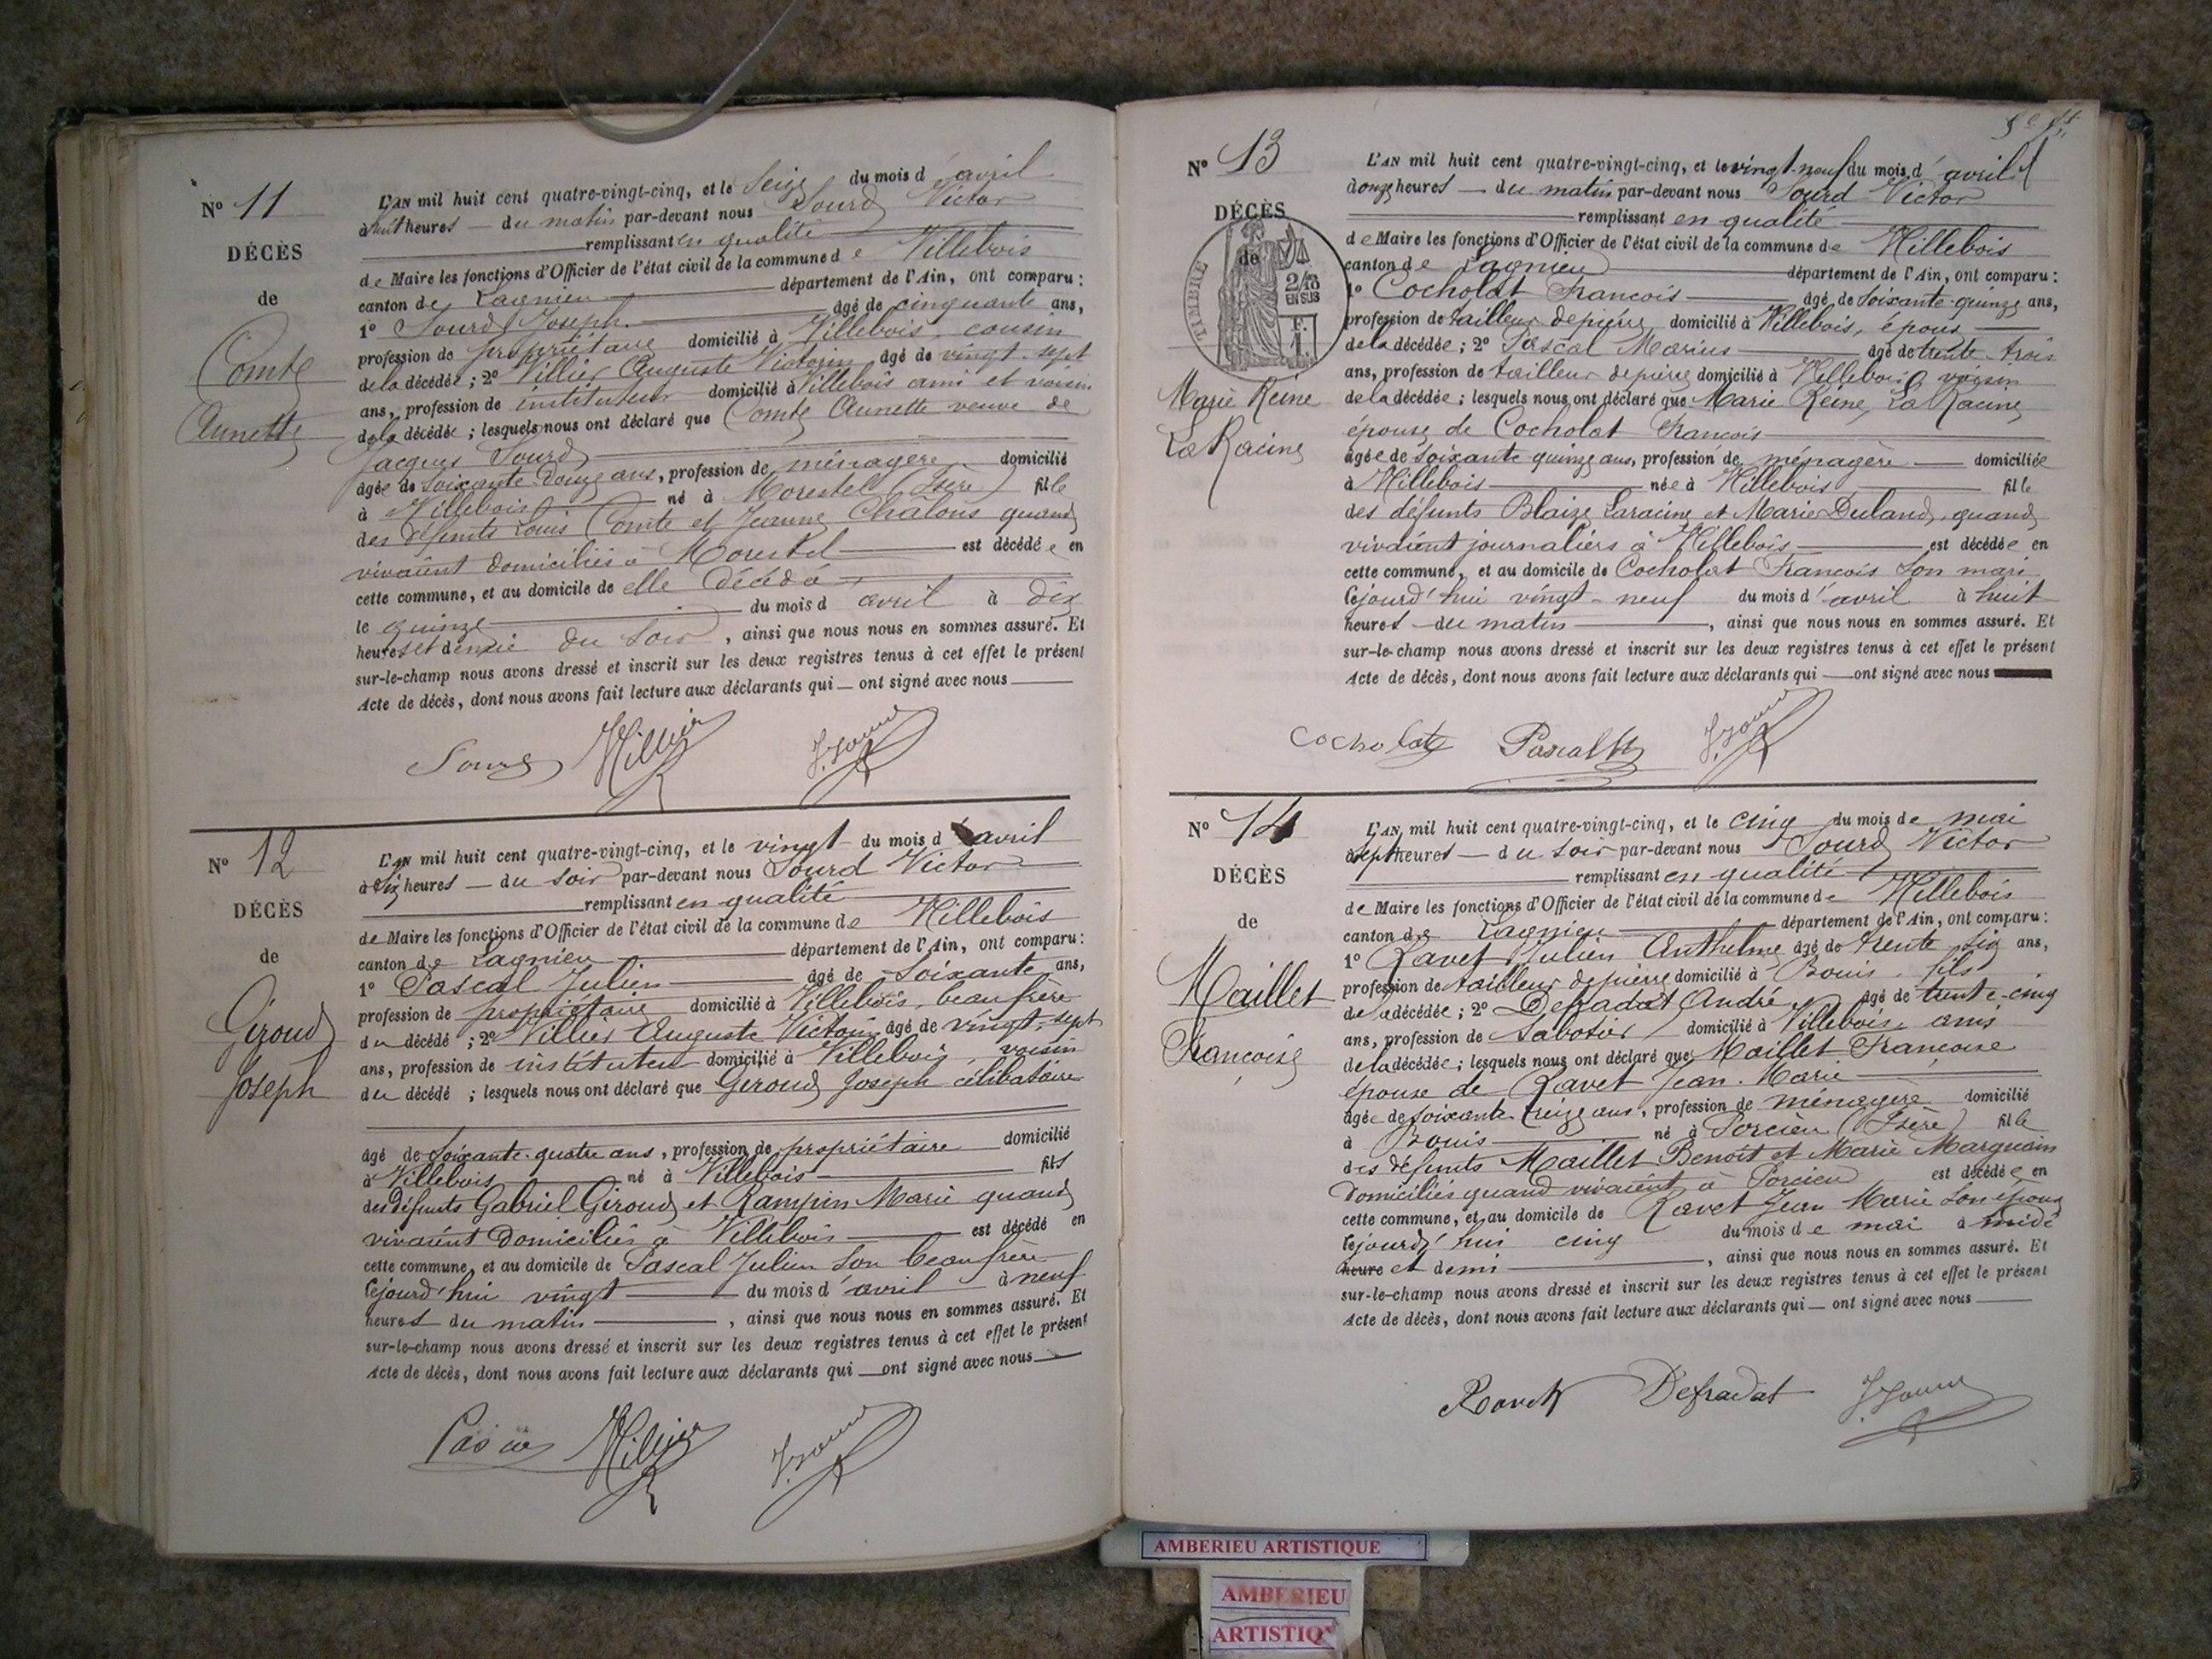 N° 11
DÉCÈS
de
Comte
Annette
L'AN mil huit cent quatre-vingt-cinq, et le Seize du mois d'avril
à huit heures — du matin par-devant nous Sourd Victor
remplissant en qualité
de Maire les fonctions d'Officier de l'état civil de la commune de Villebois
canton de Lagnieu département de l'Ain, ont comparu :
1° Sourd Joseph âgé de cinquante ans,
profession de propriétaire domicilié à Villebois cousin
de la décédée ; 2° Villier Auguste Victorin âgé de vingt-sept
ans, profession de instituteur domicilié à Villebois ami et voisin
de la décédée ; lesquels nous ont déclaré que Comte Annette veuve de
Jacques Sourd
âgée de soixante-douze ans, profession de ménagère domicilié
à Villebois né à Morestel (Isère) fille
des défunts Louis Comte et Jeanne Chalons quand
vivaient domiciliés à Morestel est décédée en
cette commune, et au domicile de elle décédé
le quinze du mois d'avril à dix
heures et demie du soir, ainsi que nous nous en sommes assuré. Et
sur-le-champ nous avons dressé et inscrit sur les deux registres tenus à cet effet le présent
Acte de décès, dont nous avons fait lecture aux déclarants qui — ont signé avec nous
Sourd Villier
N° 12
DÉCÈS
de
Giroud
Joseph
L'AN mil huit cent quatre-vingt-cinq, et le vingt du mois d'avril
à six heures — du soir par-devant nous Sourd Victor
remplissant en qualité
de Maire les fonctions d'Officier de l'état civil de la commune de Villebois
canton de Lagnieu département de l'Ain, ont comparu :
1° Pascal Julien âgé de soixante ans,
profession de propriétaire domicilié à Villebois, beau frère
du décédé ; 2° Villier Auguste Victorin âgé de vingt-sept
ans, profession de instituteur domicilié à Villebois, voisin
du décédé ; lesquels nous ont déclaré que Giroud Joseph célibataire
âgé de soixante-quatre ans, profession de propriétaire domicilié
à Villebois né à Villebois fils
des défunts Gabriel Giroud et Rampin Marie quand
vivaient domiciliés à Villebois est décédé en
cette commune, et au domicile de Pascal Julien son beau frère
cejourd'hui vingt du mois d'avril à neuf
heures du matin, ainsi que nous nous en sommes assuré. Et
sur-le-champ nous avons dressé et inscrit sur les deux registres tenus à cet effet le présent
Acte de décès, dont nous avons fait lecture aux déclarants qui — ont signé avec nous
Villier
N° 13
DÉCÈS
de
TIMBRE
2/10
EN SUS
F.
1
Marie Reine
La Racine
L'AN mil huit cent quatre-vingt-cinq, et le vingt-neuf du mois d'avril
à onze heures — du matin par-devant nous Sourd Victor
remplissant en qualité
de Maire les fonctions d'Officier de l'état civil de la commune de Villebois
canton de Lagnieu département de l'Ain, ont comparu :
1° Cocholat François âgé de soixante-quinze ans,
profession de tailleur de pierre domicilié à Villebois, époux
de la décédée ; 2° Pascal Marius âgé de trente-trois
ans, profession de tailleur de pierre domicilié à Villebois voisin
de la décédée ; lesquels nous ont déclaré que Marie Reine La Racine
épouse de Cocholat François
âgée de soixante quinze ans, profession de ménagère domiciliée
à Villebois née à Villebois fille
des défunts Blaize Laracine et Marie Duland, quand
vivaient journaliers à Villebois est décédée en
cette commune, et au domicile de Cocholat François son mari
cejourd'hui vingt-neuf du mois d'avril à huit
heures — du matin, ainsi que nous nous en sommes assuré. Et
sur-le-champ nous avons dressé et inscrit sur les deux registres tenus à cet effet le présent
Acte de décès, dont nous avons fait lecture aux déclarants qui — ont signé avec nous
Cocholat Pascal M
N° 14
DÉCÈS
de
Maillet
Françoise
L'AN mil huit cent quatre-vingt-cinq, et le cinq du mois de mai
à sept heures — du soir par-devant nous Sourd Victor
remplissant en qualité
de Maire les fonctions d'Officier de l'état civil de la commune de Villebois
canton de Lagnieu département de l'Ain, ont comparu :
1° Ravet Julien Anthelme âgé de trente six ans,
profession de tailleur de pierre domicilié à Bouis, fils
de la décédée ; 2° Defradat André âgé de trente-cinq
ans, profession de sabotier domicilié à Villebois, amis
de la décédée ; lesquels nous ont déclaré que Maillet Françoise
épouse de Ravet Jean-Marie
âgée de soixante-treize ans, profession de ménagère domicilié
à Bouis né à Porcieu (Isère) fille
des défunts Maillet Benoît et Marie Marguain
domiciliés quand vivaient à Porcieu est décédée en
cette commune, et au domicile de Ravet Jean Marie son époux
cejourd'hui cinq du mois de mai à midi
heure et demi, ainsi que nous nous en sommes assuré. Et
sur-le-champ nous avons dressé et inscrit sur les deux registres tenus à cet effet le présent
Acte de décès, dont nous avons fait lecture aux déclarants qui — ont signé avec nous
Defradat
AMBERIEU ARTISTIQUE
AMBERIEU
ARTISTIQ